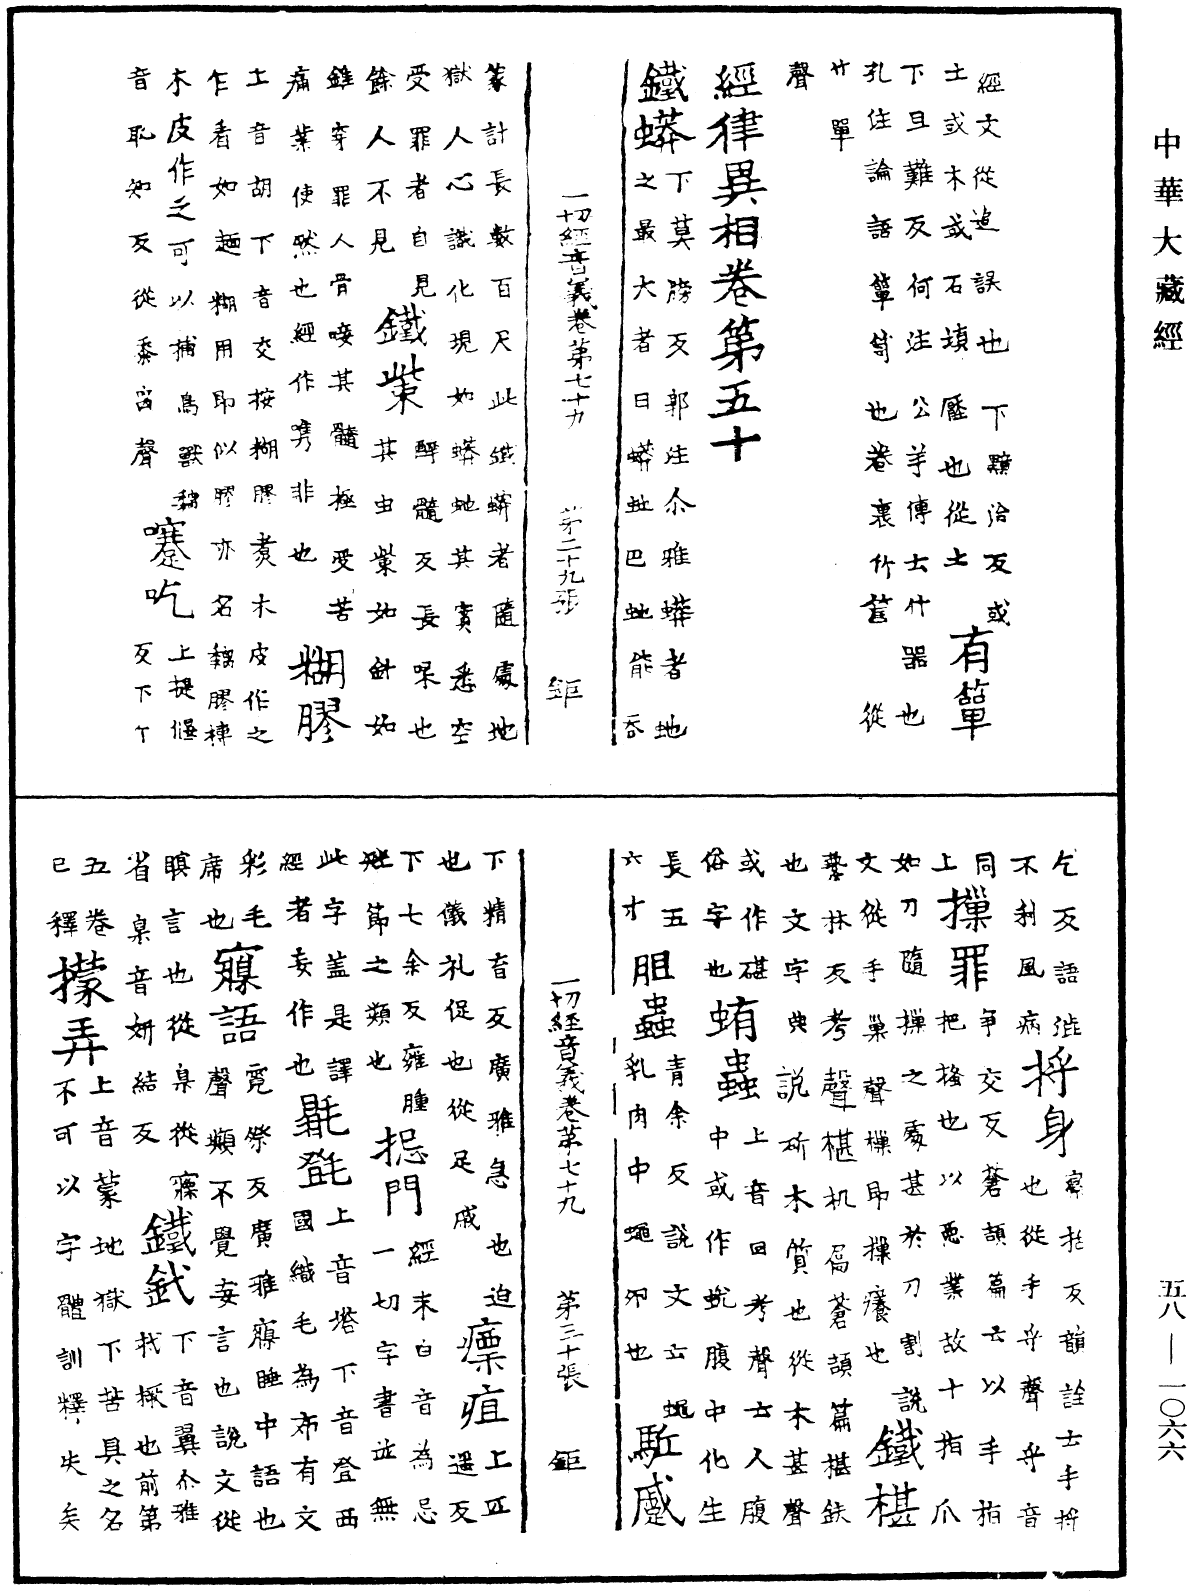 中華大藏經
經文從追誤也下黶洽反或
士或木或石壓也從土有簞
下旦難反何注公羊傳云竹器也
孔注論語簞笥也卷裏作舊從
廾單
聲
經律異相卷第五十
鐵蟒下莫牓反郭注尒雅蟒者虵
之最大者曰蟒虵巴虵能吞
一切經音義卷第七十九 第二十九張 鉅
篆計長數百尺此鐵蟒者隨處地
獄人心識化現如蟒虵其實悉空
受罪者自見髓反長味也
餘人不見鐵紫其虫紫如針如
錐穿罪人骨唼其髓極受苦
痛業使然也經作嶲非也糊膠
土音胡下音交按糊膠煑木皮作之
乍看如麵糊用即似膠亦名䊀膠㨂
木皮作之可以捕鳥獸蹇吃上提偃
音恥知反從黍离聲反下斤
乞反語澁捋身䆛括反韻詮云手捋
不利風病也從手寽聲寽音
同摷罪爭交反蒼頡篇云以手指
上把搔也以惡業故十指爪
如刀隨摷之處甚於刀割說鐵椹
文從手巢聲樔即摷癢也
蓺林反考聲椹机㞐蒼頡篇椹鈇
也文字典說斫木質也從木甚聲
或作碪蛕蟲上音回考聲云人腹
俗字也中或作蛻腹中化生
長五胆蟲青余反說文云蠅駈慼
六寸乳肉中蠅卵也
一切經音義卷第七十九 第三十張 鉅
下精育反廣雅急也迫瘭疽上匹
也儀礼促也從足戚遥反
下七余反癰腫搃門經末白音為忌
㿈節之類也一切字書並無
此字盖是譯㲲㲪上音塔下音登西
經者妄作也國織毛為布有文
彩毛寱語霓祭反廣雅寱睡中語也
席也聲類不覺妄言也說文從
瞑言也從臬從㝱鐵釴下音翼尒雅
省臬音姸結反杙橛也前第
五卷㩚弄上音蒙地獄下苦具之名
已釋不可以字體訓釋失矣
五八—一〇六六